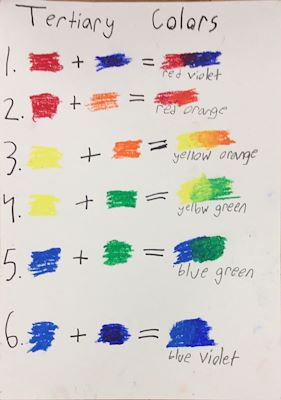 Tertiary Colors
1. + =
red violet
2. + =
red orange
3. + =
yellow orange
4. + =
yellow green
5. + =
blue green
6. + =
blue violet